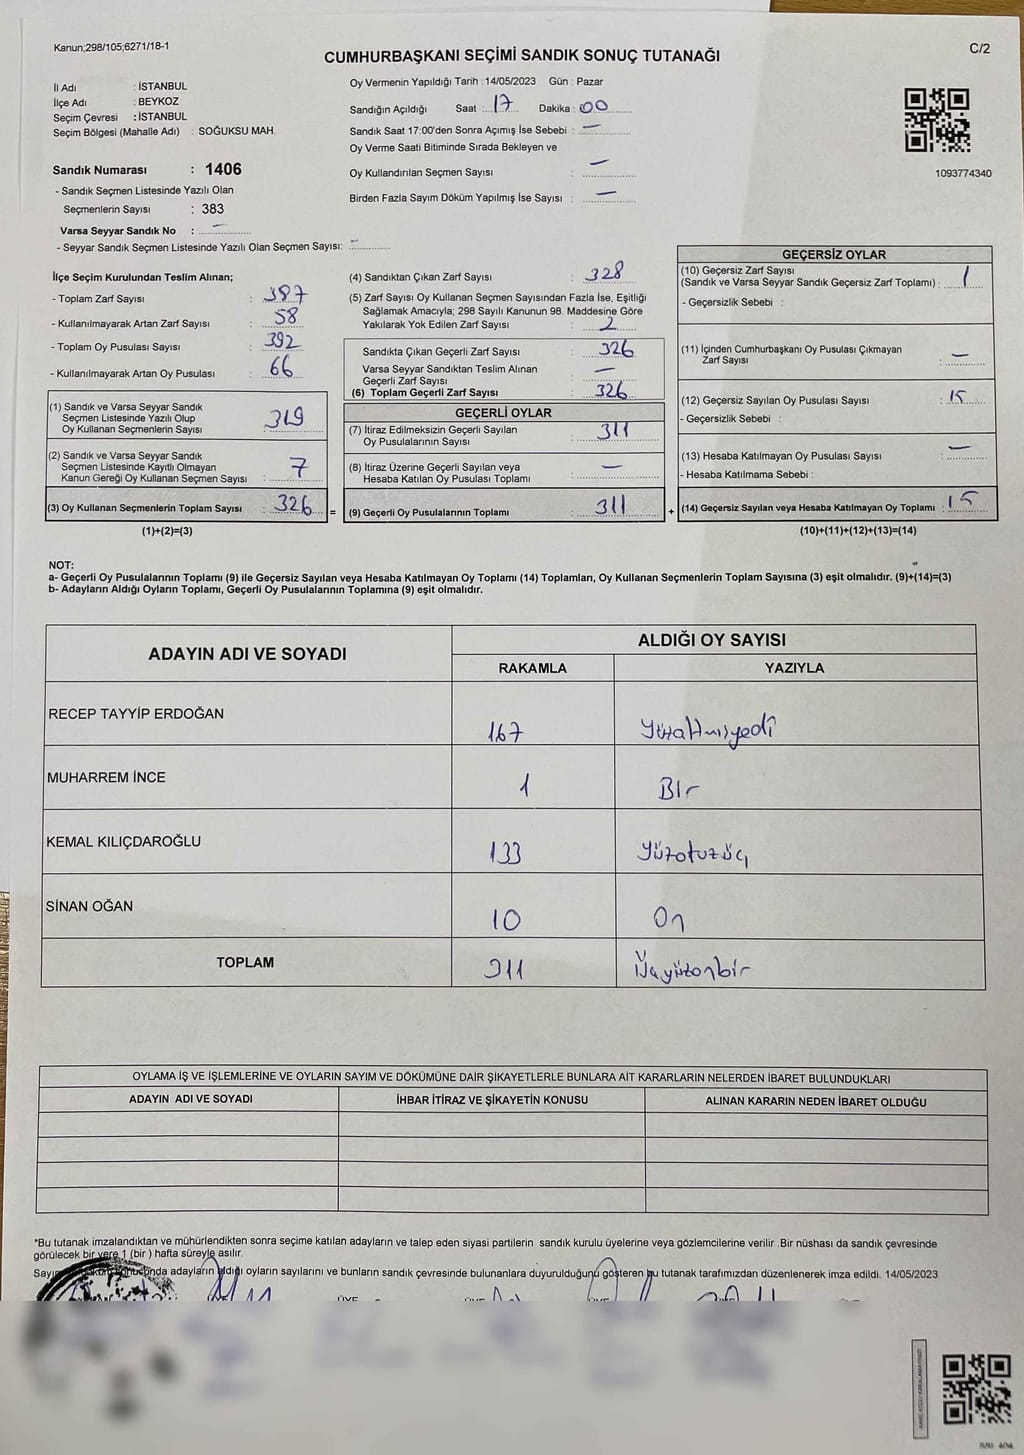 Kanun;298/105;6271/18-1
C/2
CUMHURBAŞKANI SEÇİMİ SANDIK SONUÇ TUTANAĞI
İl Adı : İSTANBUL
İlçe Adı : BEYKOZ
Seçim Çevresi : İSTANBUL
Seçim Bölgesi (Mahalle Adı) : SOĞUKSU MAH.
Sandık Numarası : 1406
- Sandık Seçmen Listesinde Yazılı Olan
Seçmenlerin Sayısı : 383
Varsa Seyyar Sandık No : –
- Seyyar Sandık Seçmen Listesinde Yazılı Olan Seçmen Sayısı: –
Oy Vermenin Yapıldığı Tarih :14/05/2023 Gün : Pazar
Sandığın Açıldığı Saat : 17 Dakika : 00
Sandık Saat 17:00'den Sonra Açımış İse Sebebi : –
Oy Verme Saati Bitiminde Sırada Bekleyen ve
Oy Kullandırılan Seçmen Sayısı : –
Birden Fazla Sayım Döküm Yapılmış İse Sayısı : –
1093774340
İlçe Seçim Kurulundan Teslim Alınan;
- Toplam Zarf Sayısı : 387
- Kullanılmayarak Artan Zarf Sayısı : 58
- Toplam Oy Pusulası Sayısı : 392
- Kullanılmayarak Artan Oy Pusulası : 66
(1) Sandık ve Varsa Seyyar Sandık
Seçmen Listesinde Yazılı Olup
Oy Kullanan Seçmenlerin Sayısı : 319
(2) Sandık ve Varsa Seyyar Sandık
Seçmen Listesinde Kayıtlı Olmayan
Kanun Gereği Oy Kullanan Seçmen Sayısı : 7
(3) Oy Kullanan Seçmenlerin Toplam Sayısı : 326 =
(1)+(2)=(3)
(4) Sandıktan Çıkan Zarf Sayısı : 328
(5) Zarf Sayısı Oy Kullanan Seçmen Sayısından Fazla İse, Eşitliği
Sağlamak Amacıyla; 298 Sayılı Kanunun 98. Maddesine Göre
Yakılarak Yok Edilen Zarf Sayısı : 2
Sandıkta Çıkan Geçerli Zarf Sayısı : 326
Varsa Seyyar Sandıktan Teslim Alınan
Geçerli Zarf Sayısı : –
(6) Toplam Geçerli Zarf Sayısı : 326
GEÇERLİ OYLAR
(7) İtiraz Edilmeksizin Geçerli Sayılan
Oy Pusulalarının Sayısı : 311
(8) İtiraz Üzerine Geçerli Sayılan veya
Hesaba Katılan Oy Pusulası Toplamı : –
(9) Geçerli Oy Pusulalarının Toplamı : 311 +
GEÇERSİZ OYLAR
(10) Geçersiz Zarf Sayısı
(Sandık ve Varsa Seyyar Sandık Geçersiz Zarf Toplamı) : 1
- Geçersizlik Sebebi :
(11) İçinden Cumhurbaşkanı Oy Pusulası Çıkmayan
Zarf Sayısı : –
(12) Geçersiz Sayılan Oy Pusulası Sayısı : 15
- Geçersizlik Sebebi :
(13) Hesaba Katılmayan Oy Pusulası Sayısı : –
- Hesaba Katılmama Sebebi :
(14) Geçersiz Sayılan veya Hesaba Katılmayan Oy Toplamı : 15
(10)+(11)+(12)+(13)=(14)
NOT:
a- Geçerli Oy Pusulalarının Toplamı (9) ile Geçersiz Sayılan veya Hesaba Katılmayan Oy Toplamı (14) Toplamları, Oy Kullanan Seçmenlerin Toplam Sayısına (3) eşit olmalıdır. (9)+(14)=(3)
b- Adayların Aldığı Oyların Toplamı, Geçerli Oy Pusulalarının Toplamına (9) eşit olmalıdır.
ADAYIN ADI VE SOYADI
ALDIĞI OY SAYISI
RAKAMLA YAZIYLA
RECEP TAYYİP ERDOĞAN 167 Yüzaltmışyedi
MUHARREM İNCE 1 Bir
KEMAL KILIÇDAROĞLU 133 Yüzotuzüç
SİNAN OĞAN 10 On
TOPLAM 311 Üçyüzonbir
OYLAMA İŞ VE İŞLEMLERİNE VE OYLARIN SAYIM VE DÖKÜMÜNE DAİR ŞİKAYETLERLE BUNLARA AİT KARARLARIN NELERDEN İBARET BULUNDUKLARI
ADAYIN ADI VE SOYADI İHBAR İTİRAZ VE ŞİKAYETİN KONUSU ALINAN KARARIN NEDEN İBARET OLDUĞU
*Bu tutanak imzalandıktan ve mühürlendikten sonra seçime katılan adayların ve talep eden siyasi partilerin sandık kurulu üyelerine veya gözlemcilerine verilir .Bir nüshası da sandık çevresinde
görülecek bir yere 1 (bir ) hafta süreyle asılır.
adayların aldığı oyların sayılarını ve bunların sandık çevresinde bulunanlara duyurulduğunu gösteren bu tutanak tarafımızdan düzenlenerek imza edildi. 14/05/2023